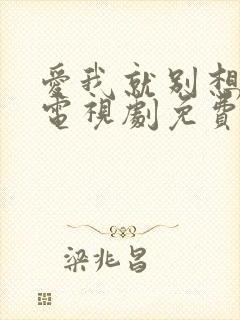 愛我就別想
電視劇免費
梁兆昌